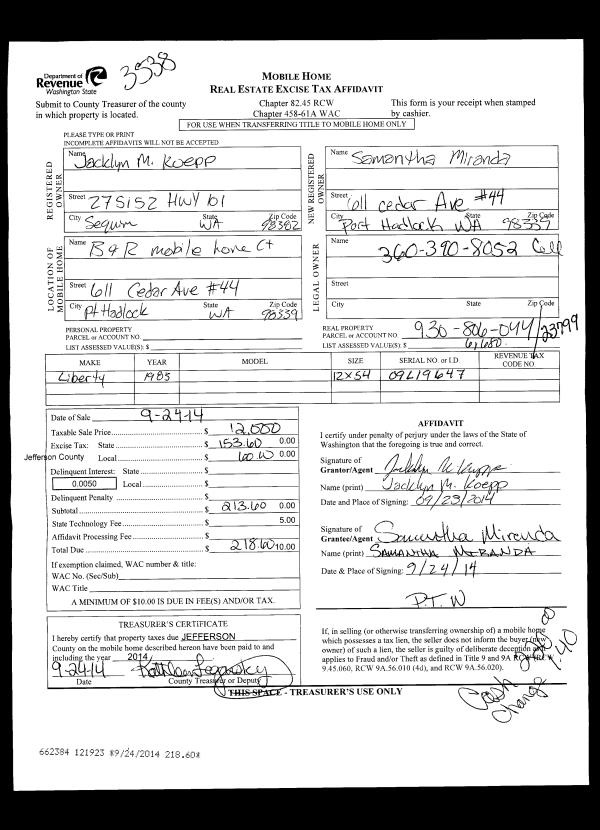 Department of
Revenue
Washington State
3538
MOBILE HOME
REAL ESTATE EXCISE TAX AFFIDAVIT
Submit to County Treasurer of the county
in which property is located.
Chapter 82.45 RCW
Chapter 458-61A WAC
This form is your receipt when stamped
by cashier.
FOR USE WHEN TRANSFERRING TITLE TO MOBILE HOME ONLY
PLEASE TYPE OR PRINT
INCOMPLETE AFFIDAVITS WILL NOT BE ACCEPTED
REGISTERED OWNER
Name Jacklyn M. Koepp
Street 275152 HWY 101
City State Zip Code
Sequim WA 98382
NEW REGISTERED OWNER
Name Samantha Miranda
Street 611 cedar Ave #44
City State Zip Code
Port Hadlock WA 98339
LOCATION OF MOBILE HOME
Name B&R mobile home Ct
Street 611 Cedar Ave #44
City State Zip Code
Pt Hadlock WA 98339
LEGAL OWNER
Name
360-390-8052 Cell
Street
City State Zip Code
PERSONAL PROPERTY
PARCEL or ACCOUNT NO.
LIST ASSESSED VALUE(S): $
REAL PROPERTY
PARCEL or ACCOUNT NO. 930-806-044/23999
LIST ASSESSED VALUE(S): $ 6,680.
MAKE YEAR MODEL SIZE SERIAL NO. or I.D. REVENUE TAX CODE NO.
Liberty 1985 12x54 09L19647
Date of Sale 9-24-14
Taxable Sale Price $ 12,000
Excise Tax: State $ 153.60 0.00
Jefferson County Local $ 60.00 0.00
Delinquent Interest: State $
0.0050 Local $
Delinquent Penalty $
Subtotal $ 213.60 0.00
State Technology Fee $ 5.00
Affidavit Processing Fee $
Total Due $ 218.60 10.00
If exemption claimed, WAC number & title:
WAC No. (Sec/Sub)
WAC Title
A MINIMUM OF $10.00 IS DUE IN FEE(S) AND/OR TAX.
AFFIDAVIT
I certify under penalty of perjury under the laws of the State of
Washington that the foregoing is true and correct.
Signature of
Grantor/Agent
Name (print) Jacklyn M. Koepp
Date and Place of Signing: 09/23/2014
Signature of
Grantee/Agent Samantha Miranda
Name (print) SAMANTHA MIRANDA
Date & Place of Signing: 9/24/14
P.T. W
TREASURER'S CERTIFICATE
I hereby certify that property taxes due JEFFERSON
County on the mobile home described hereon have been paid to and
including the year 2014
9-24-14
Date County Treasurer or Deputy
If, in selling (or otherwise transferring ownership of) a mobile home
which possesses a tax lien, the seller does not inform the buyer (new
owner) of such a lien, the seller is guilty of deliberate deception as it
applies to Fraud and/or Theft as defined in Title 9 and 9A RCW (RCW
9.45.060, RCW 9A.56.010 (4d), and RCW 9A.56.020).
Cash
Change
THIS SPACE - TREASURER'S USE ONLY
662384 121923 *9/24/2014 218.60*